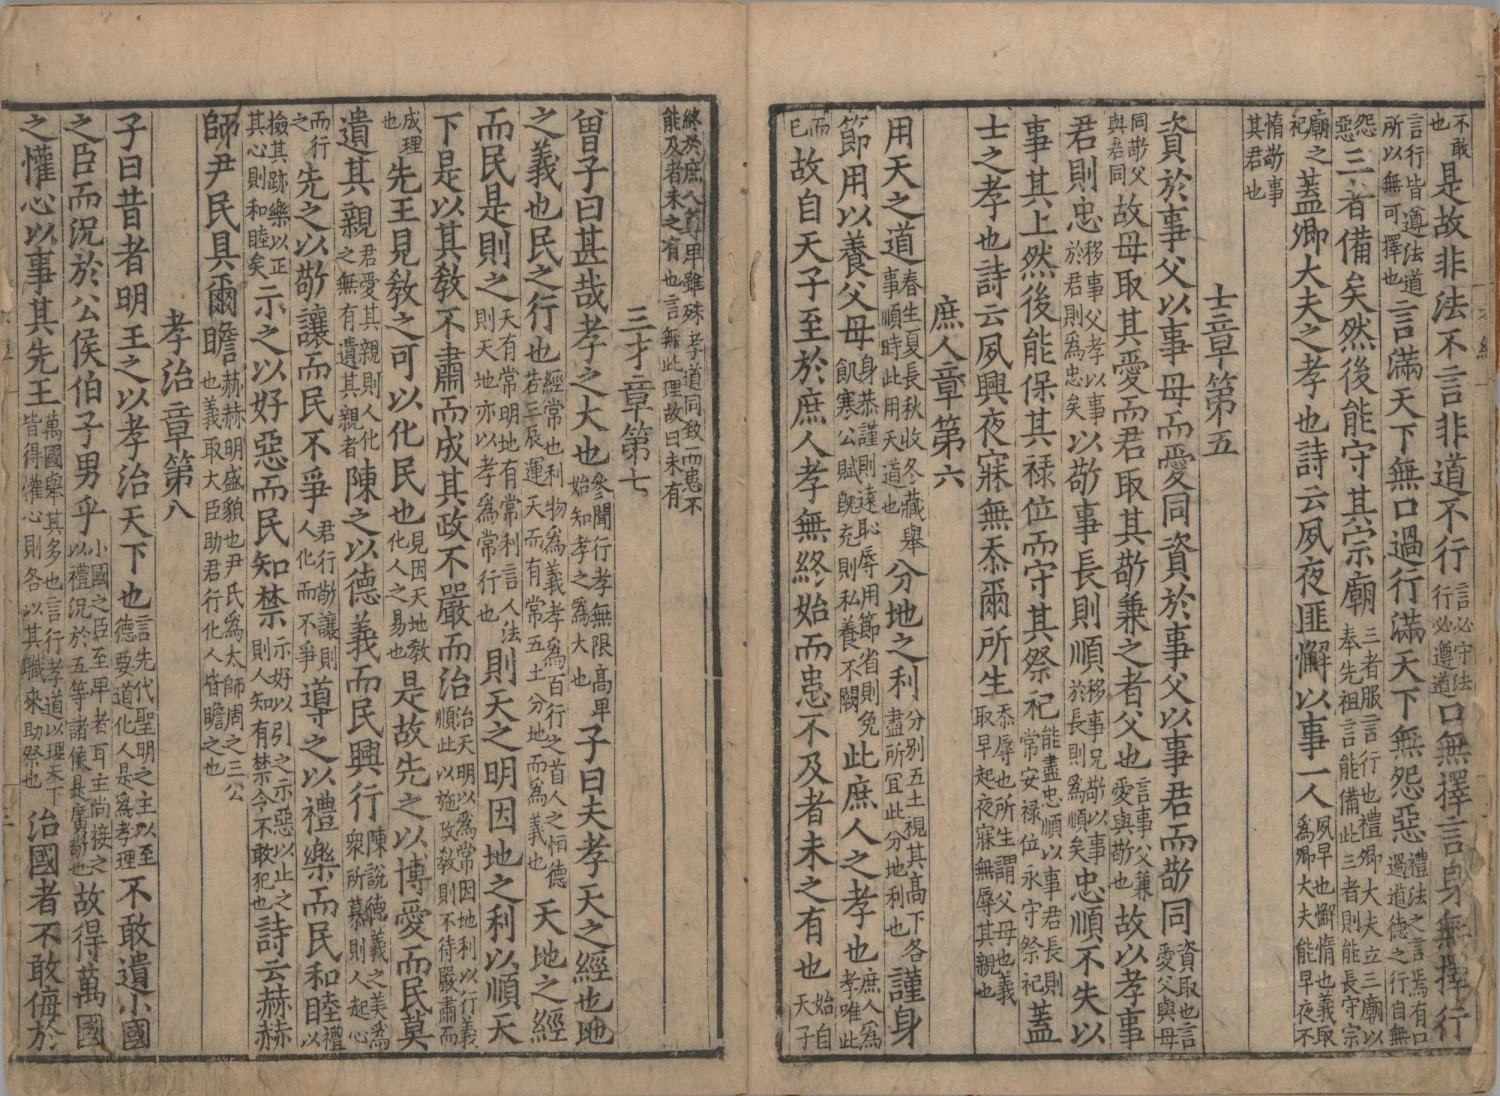 不敢也是故非法不言非道不行言必守法行必遵道口無擇言身無擇行
言行皆遵法道所以無可擇也言滿天下無口過行滿天下無怨惡禮法之言焉有口過道德之行自無
怨惡三者備矣然後能守其宗廟三者服言行也禮卿大夫立三廟以奉先祖言能備此三者則能長守宗
廟之祀蓋卿大夫之孝也詩云夙夜匪懈以事一人夙早也懈惰也義取為卿大夫能早夜不
惰敬事其君也
士章第五
資於事父以事母而愛同資於事父以事君而敬同資取也言愛父與母
同敬父與君同故母取其愛而君取其敬兼之者父也言事父兼愛與敬也故以孝事
君則忠移事父孝以事於君則為忠矣以敬事長則順移事兄敬以事於長則為順矣忠順不失以
事其上然後能保其祿位而守其祭祀能盡忠順以事君長則常安祿位永守祭祀蓋
士之孝也詩云夙興夜寐無忝爾所生忝辱也所生謂父母也義取早起夜寐無辱其親也
庶人章第六
用天之道春生夏長秋收冬藏舉事順時此用天道也分地之利分別五土視其高下各盡所宜此分地利也謹身
節用以養父母身恭謹則遠恥辱用節省則免飢寒公賦既充則私養不闕此庶人之孝也庶人為孝唯此
而已故自天子至於庶人孝無終始而患不及者未之有也始自天子
終於庶人尊卑雖殊孝道同致而患不能及者未之有也言無此理故曰未有
三才章第七
曾子曰甚哉孝之大也參聞行孝無限高卑始知孝之為大也子曰夫孝天之經也地
之義也民之行也經常也利物為義孝為百行之首人之恒德若三辰運天而有常五土分地而為義也天地之經
而民是則之天有常明地有常利言人法則天地亦以孝為常行也則天之明因地之利以順天
下是以其教不肅而成其政不嚴而治法天明以為常因地利以行義順此以施政教則不待嚴肅而
成理也先王見教之可以化民也見因天地教化人之易也是故先之以博愛而民莫
遺其親君愛其親則人化之無有遺其親者陳之以德義而民興行陳說德義之美為衆所慕則人起心
而行之先之以敬讓而民不爭君行敬讓則人化而不爭導之以禮樂而民和睦禮以
檢其跡樂以正其心則和睦矣示之以好惡而民知禁示好以引之示惡以止之則人知有禁令不敢犯也詩云赫赫
師尹民具爾瞻赫赫明盛貌也尹氏為太師周之三公也義取大臣助君行化人皆瞻之也
孝治章第八
子曰昔者明王之以孝治天下也言先代聖明之主以至德要道化人是為孝理不敢遺小國
之臣而況於公侯伯子男乎小國之臣至卑者耳主尚接之以禮況於五等諸侯是廣敬也故得萬國
之懽心以事其先王萬國舉其多也言行孝道以理天下皆得懽心則各以其職來助祭也治國者不敢侮於